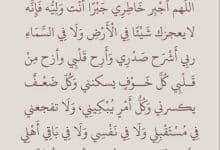 اللَّهم أَجْبِر خَاطِرِي جَبْرًا أَنْتَ وَلِيُّه فَإِنَّه
لا يعجزك شَيْئًا فِي الْأَرْضِ وَلَا فِي السَّمَاءِ
ربِّي أَشْرَح صَدْرِي وَأَرِح قَلْبِي وأزح مِن
قَلْبِي كُلَّ خَوْفٍ يسكنني وَكُلَّ ضَعْفٌ
يكسرني وَكُلُّ أَمْرٍ يُبْكِينِي، وَلَا تفجعني
فِي مُسْتَقْبِلِي وَلَا فِي نَفْسِي وَلَا فِي بَاقِي أَهْلِي